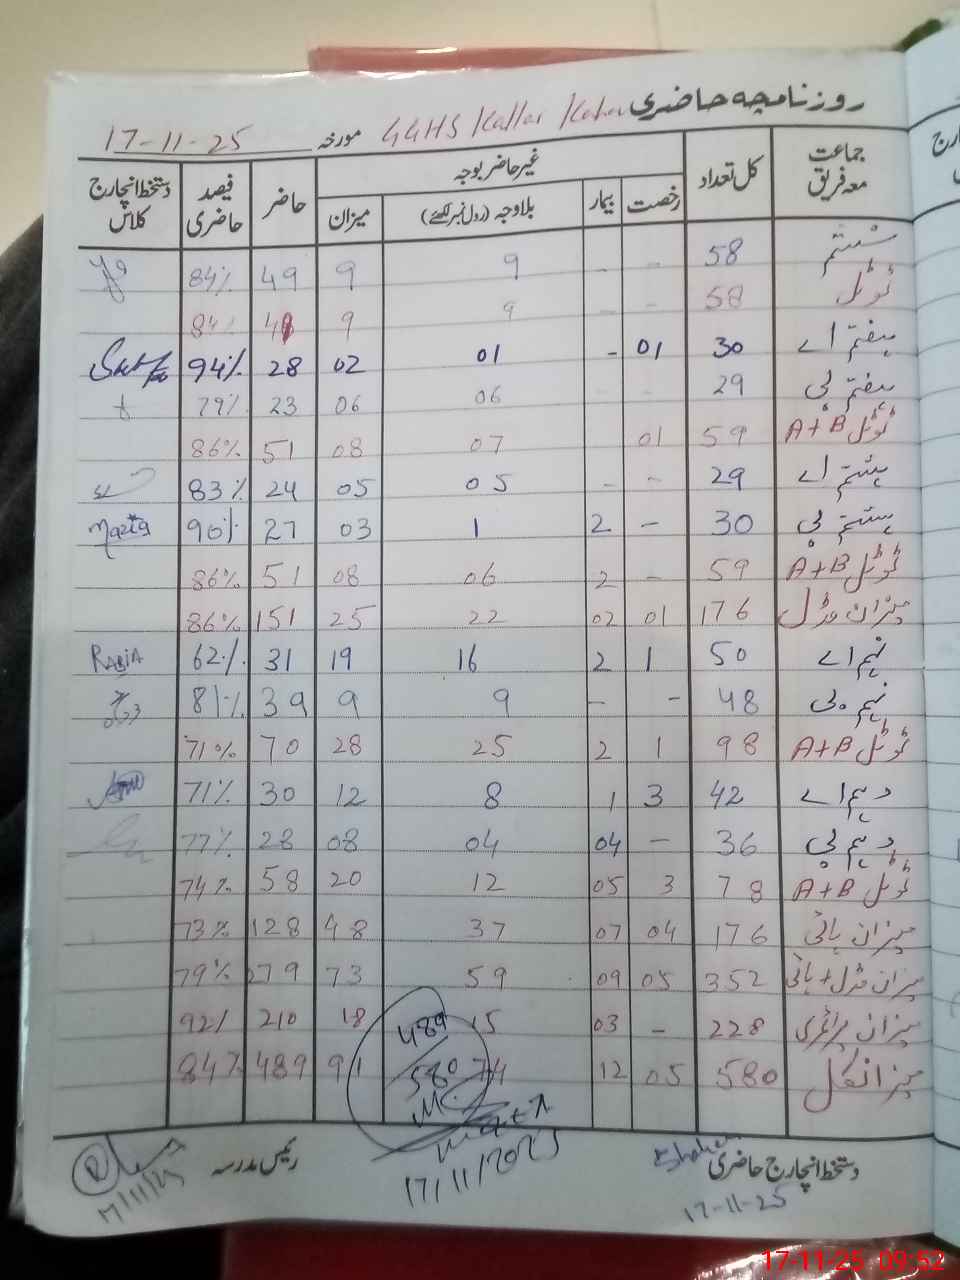 روزنامچہ حاضری GGHS Kallar Kahar مورخہ 17-11-25
جماعت معہ فریق کل تعداد غیر حاضر بوجہ حاضر فیصد حاضری دستخط انچارج کلاس
رخصت بیمار بلاوجہ (رول نمبر لکھئے) میزان
ششم 58 - - 9 9 49 84%
ٹوٹل 58 - - 9 9 49 84%
ہفتم اے 30 01 - 01 02 28 94%
ہفتم بی 29 - - 06 06 23 79%
ٹوٹل A+B 59 01 07 08 51 86%
ہشتم اے 29 - - 05 05 24 83%
ہشتم بی 30 - 2 1 03 27 90% Mazia
ٹوٹل A+B 59 - 2 06 08 51 86%
میزان مڈل 176 01 02 22 25 151 86%
نہم اے 50 1 2 16 19 31 62% RABIA
نہم بی 48 - - 9 9 39 81%
ٹوٹل A+B 98 1 2 25 28 70 71%
دہم اے 42 3 1 8 12 30 71%
دہم بی 36 - 04 04 08 28 77%
ٹوٹل A+B 78 3 05 12 20 58 74%
میزان ہائی 176 04 07 37 48 128 73%
میزان مڈل+ہائی 352 05 09 59 73 279 79%
میزان پرائمری 228 - 03 15 18 210 92%
میزان کل 580 05 12 74 91 489 84%
489
580
دستخط انچارج حاضری
17-11-25
17/11/2025
رئیس مدرسہ
17/11/25
17-11-25 09:52